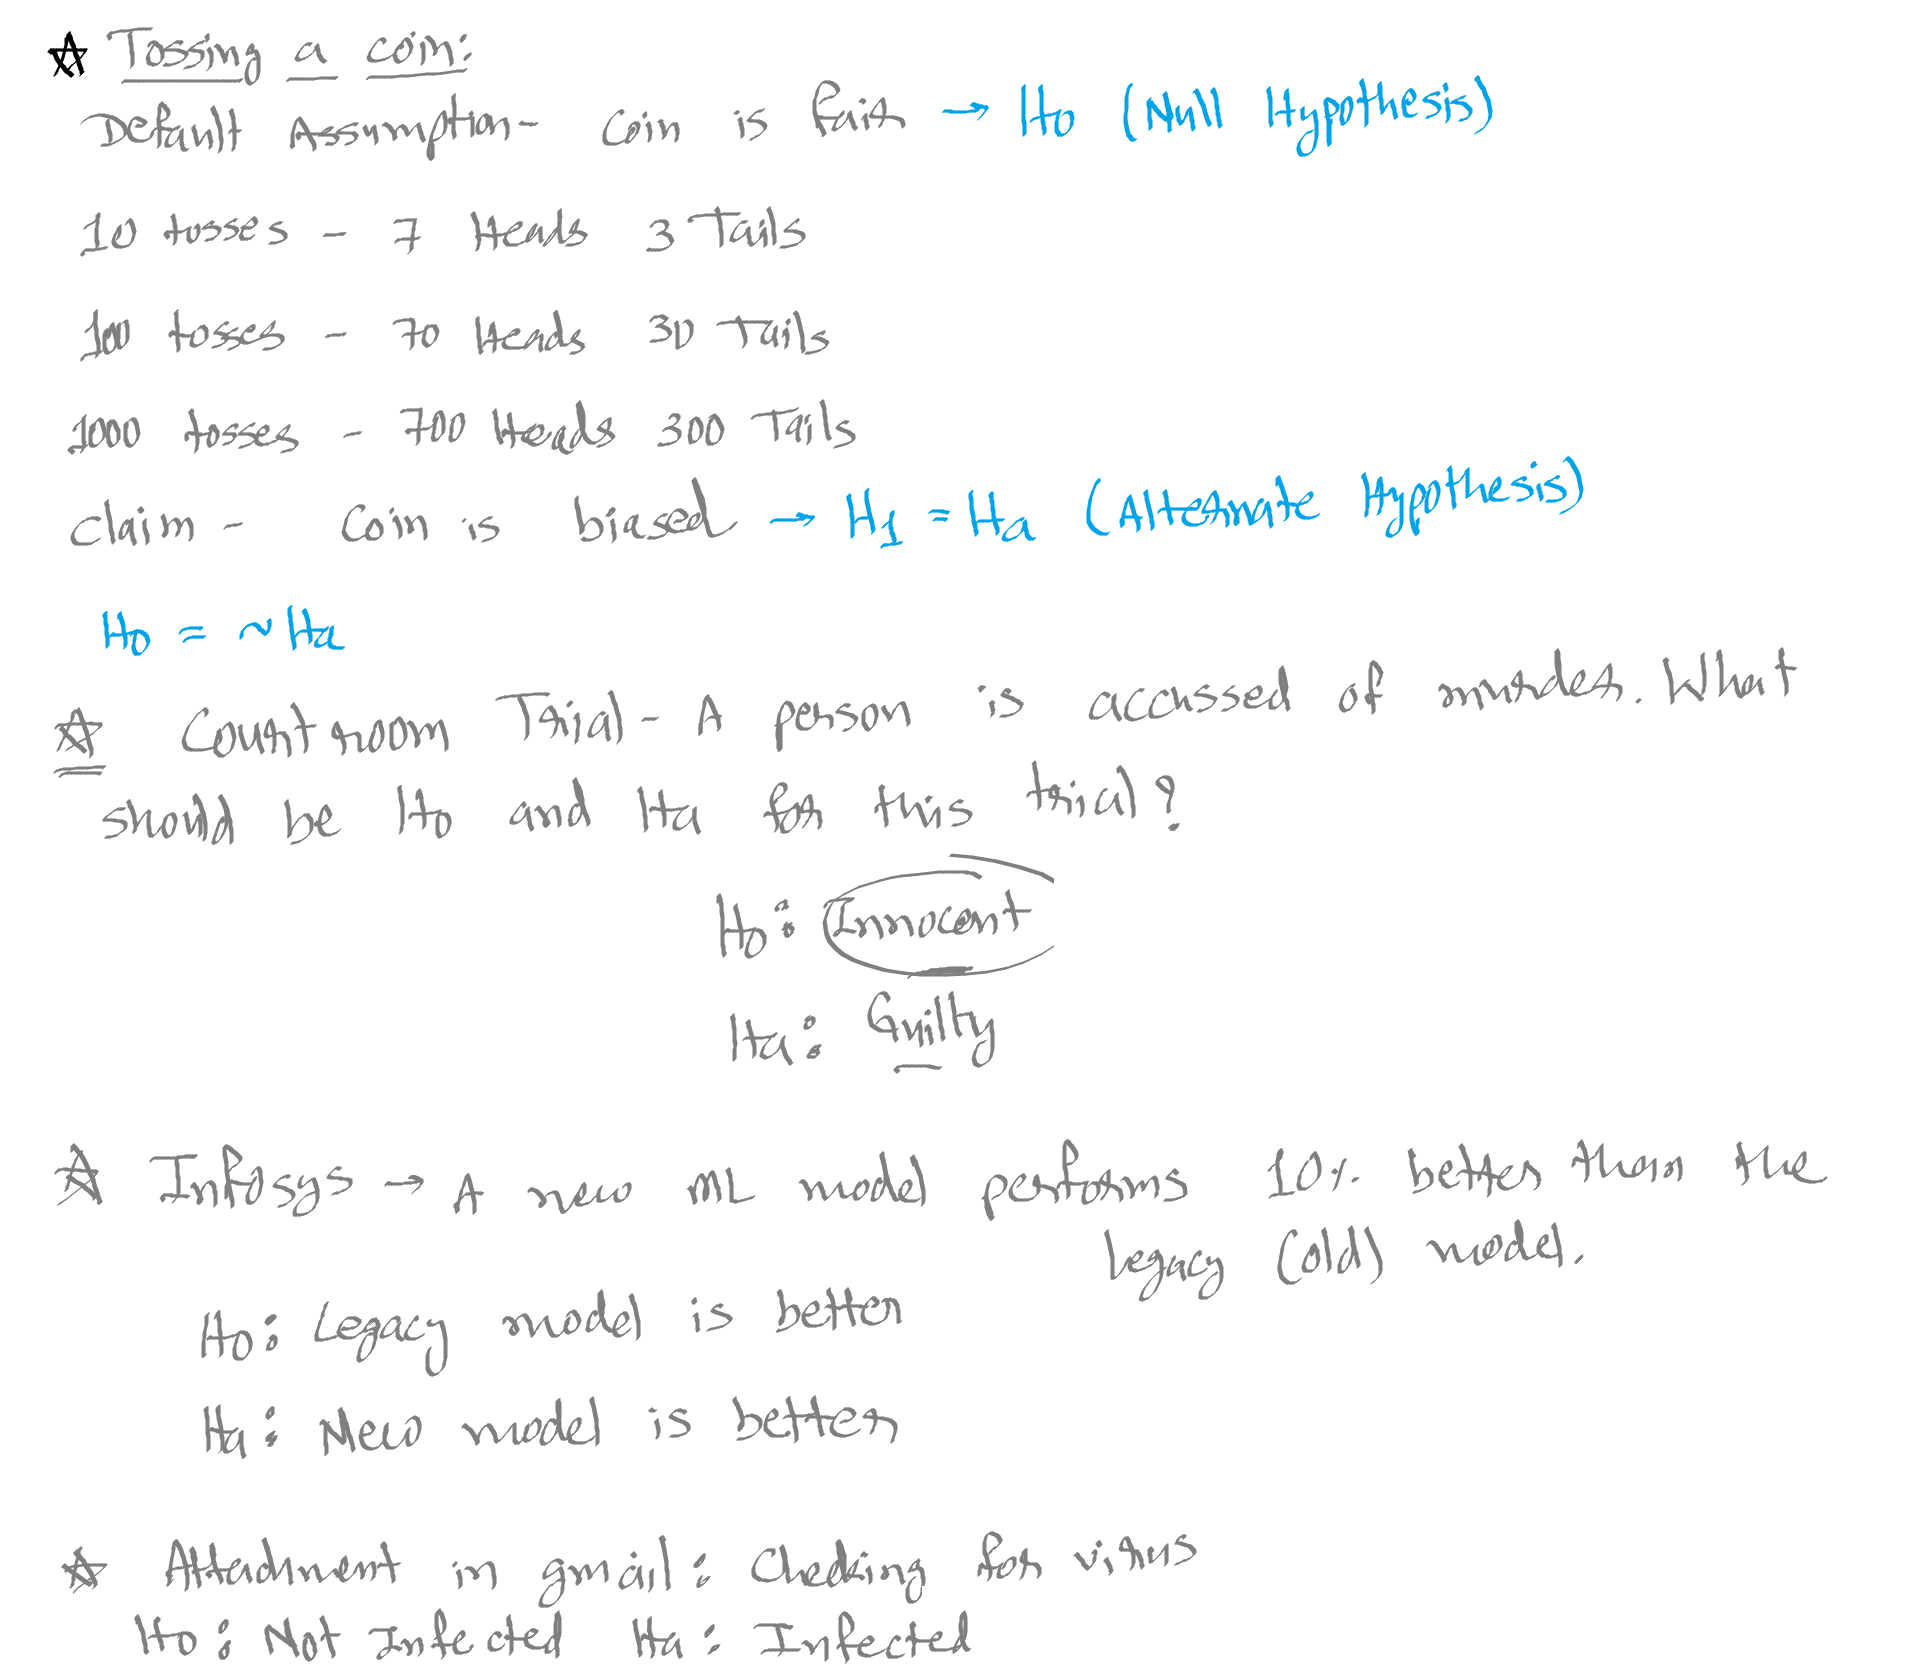 ☆ Tossing a coin:
Default Assumption- Coin is fair → H0 (Null Hypothesis)
10 tosses - 7 Heads 3 Tails
100 tosses - 70 Heads 30 Tails
1000 tosses - 700 Heads 300 Tails
claim - Coin is biased → H1 = Ha (Alternate Hypothesis)
H0 = ~Ha
☆ Court room Trial - A person is accussed of murder. What
should be H0 and Ha for this trial?
H0: Innocent
Ha: Guilty
☆ Infosys → A new ML model performs 10% better than the
legacy (old) model.
H0: Legacy model is better
Ha: New model is better
☆ Attachment in gmail: Checking for virus
H0: Not Infected Ha: Infected